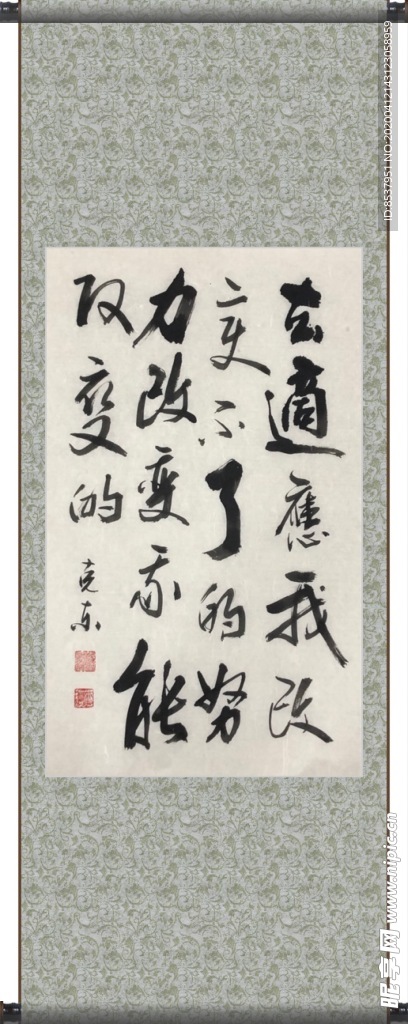 去適應我改
变不了的努
力改變我能
改变的
克东
ID:8537951 NO:20200412143123058959
昵享网 www.nipic.cn